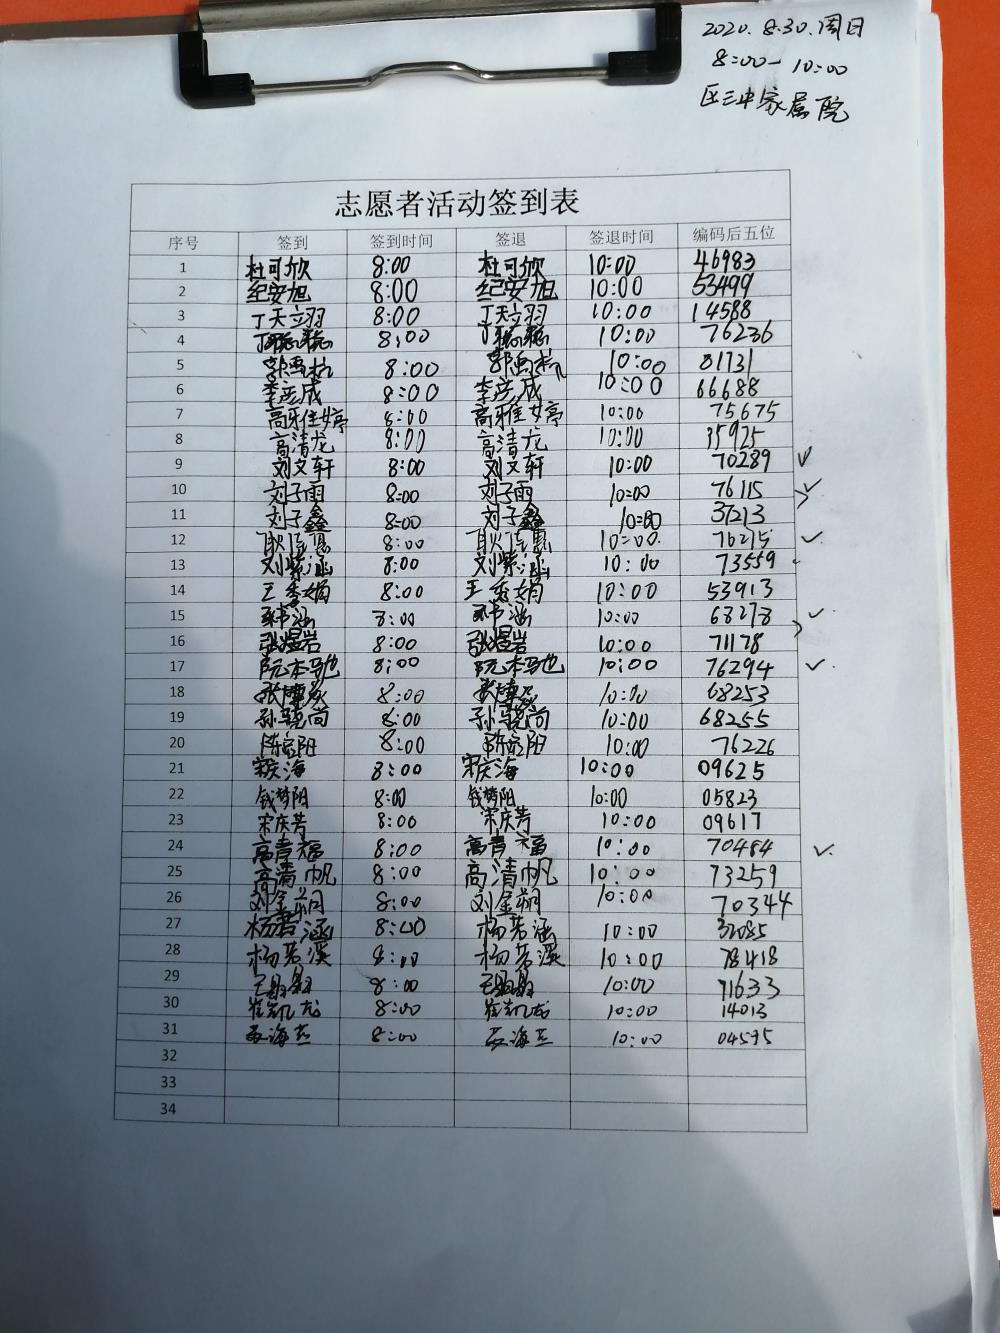 2020.8.30.周日
8:00-10:00
区三中家属院
志愿者活动签到表
序号 签到 签到时间 签退 签退时间 编码后五位
1 杜可欣 8:00 杜可欣 10:00 46983
2 纪安旭 8:00 纪安旭 10:00 53499
3 丁天立羽 8:00 丁天立羽 10:00 14588
4 8:00 10:00 76236
5 郭禹杭 8:00 郭禹杭 10:00 81731
6 李彦成 8:00 李彦成 10:00 66688
7 高雅婷 8:00 高雅婷 10:00 75675
8 高清龙 8:00 高清龙 10:00 35925
9 刘文轩 8:00 刘文轩 10:00 70289
10 刘子雨 8:00 刘子雨 10:00 76115
11 刘子鑫 8:00 刘子鑫 10:00 37213
12 8:00 10:00 76215
13 刘紫涵 8:00 刘紫涵 10:00 73559
14 王秀娟 8:00 王秀娟 10:00 53913
15 8:00 10:00 68278
16 张煜岩 8:00 张煜岩 10:00 71178
17 阮本驰 8:00 阮本驰 10:00 76294
18 8:00 10:00 68253
19 孙骁尚 8:00 孙骁尚 10:00 68255
20 8:00 10:00 76226
21 宋庆海 8:00 宋庆海 10:00 09625
22 钱梦阳 8:00 钱梦阳 10:00 05823
23 宋庆芳 8:00 宋庆芳 10:00 09617
24 高青福 8:00 高青福 10:00 70484
25 高清帆 8:00 高清帆 10:00 73259
26 刘金朔 8:00 刘金朔 10:00 70344
27 杨若涵 8:00 杨若涵 10:00 32085
28 杨若溪 8:00 杨若溪 10:00 78418
29 8:00 10:00 71633
30 崔凯龙 8:00 崔凯龙 10:00 14013
31 8:00 10:00 04575
32
33
34